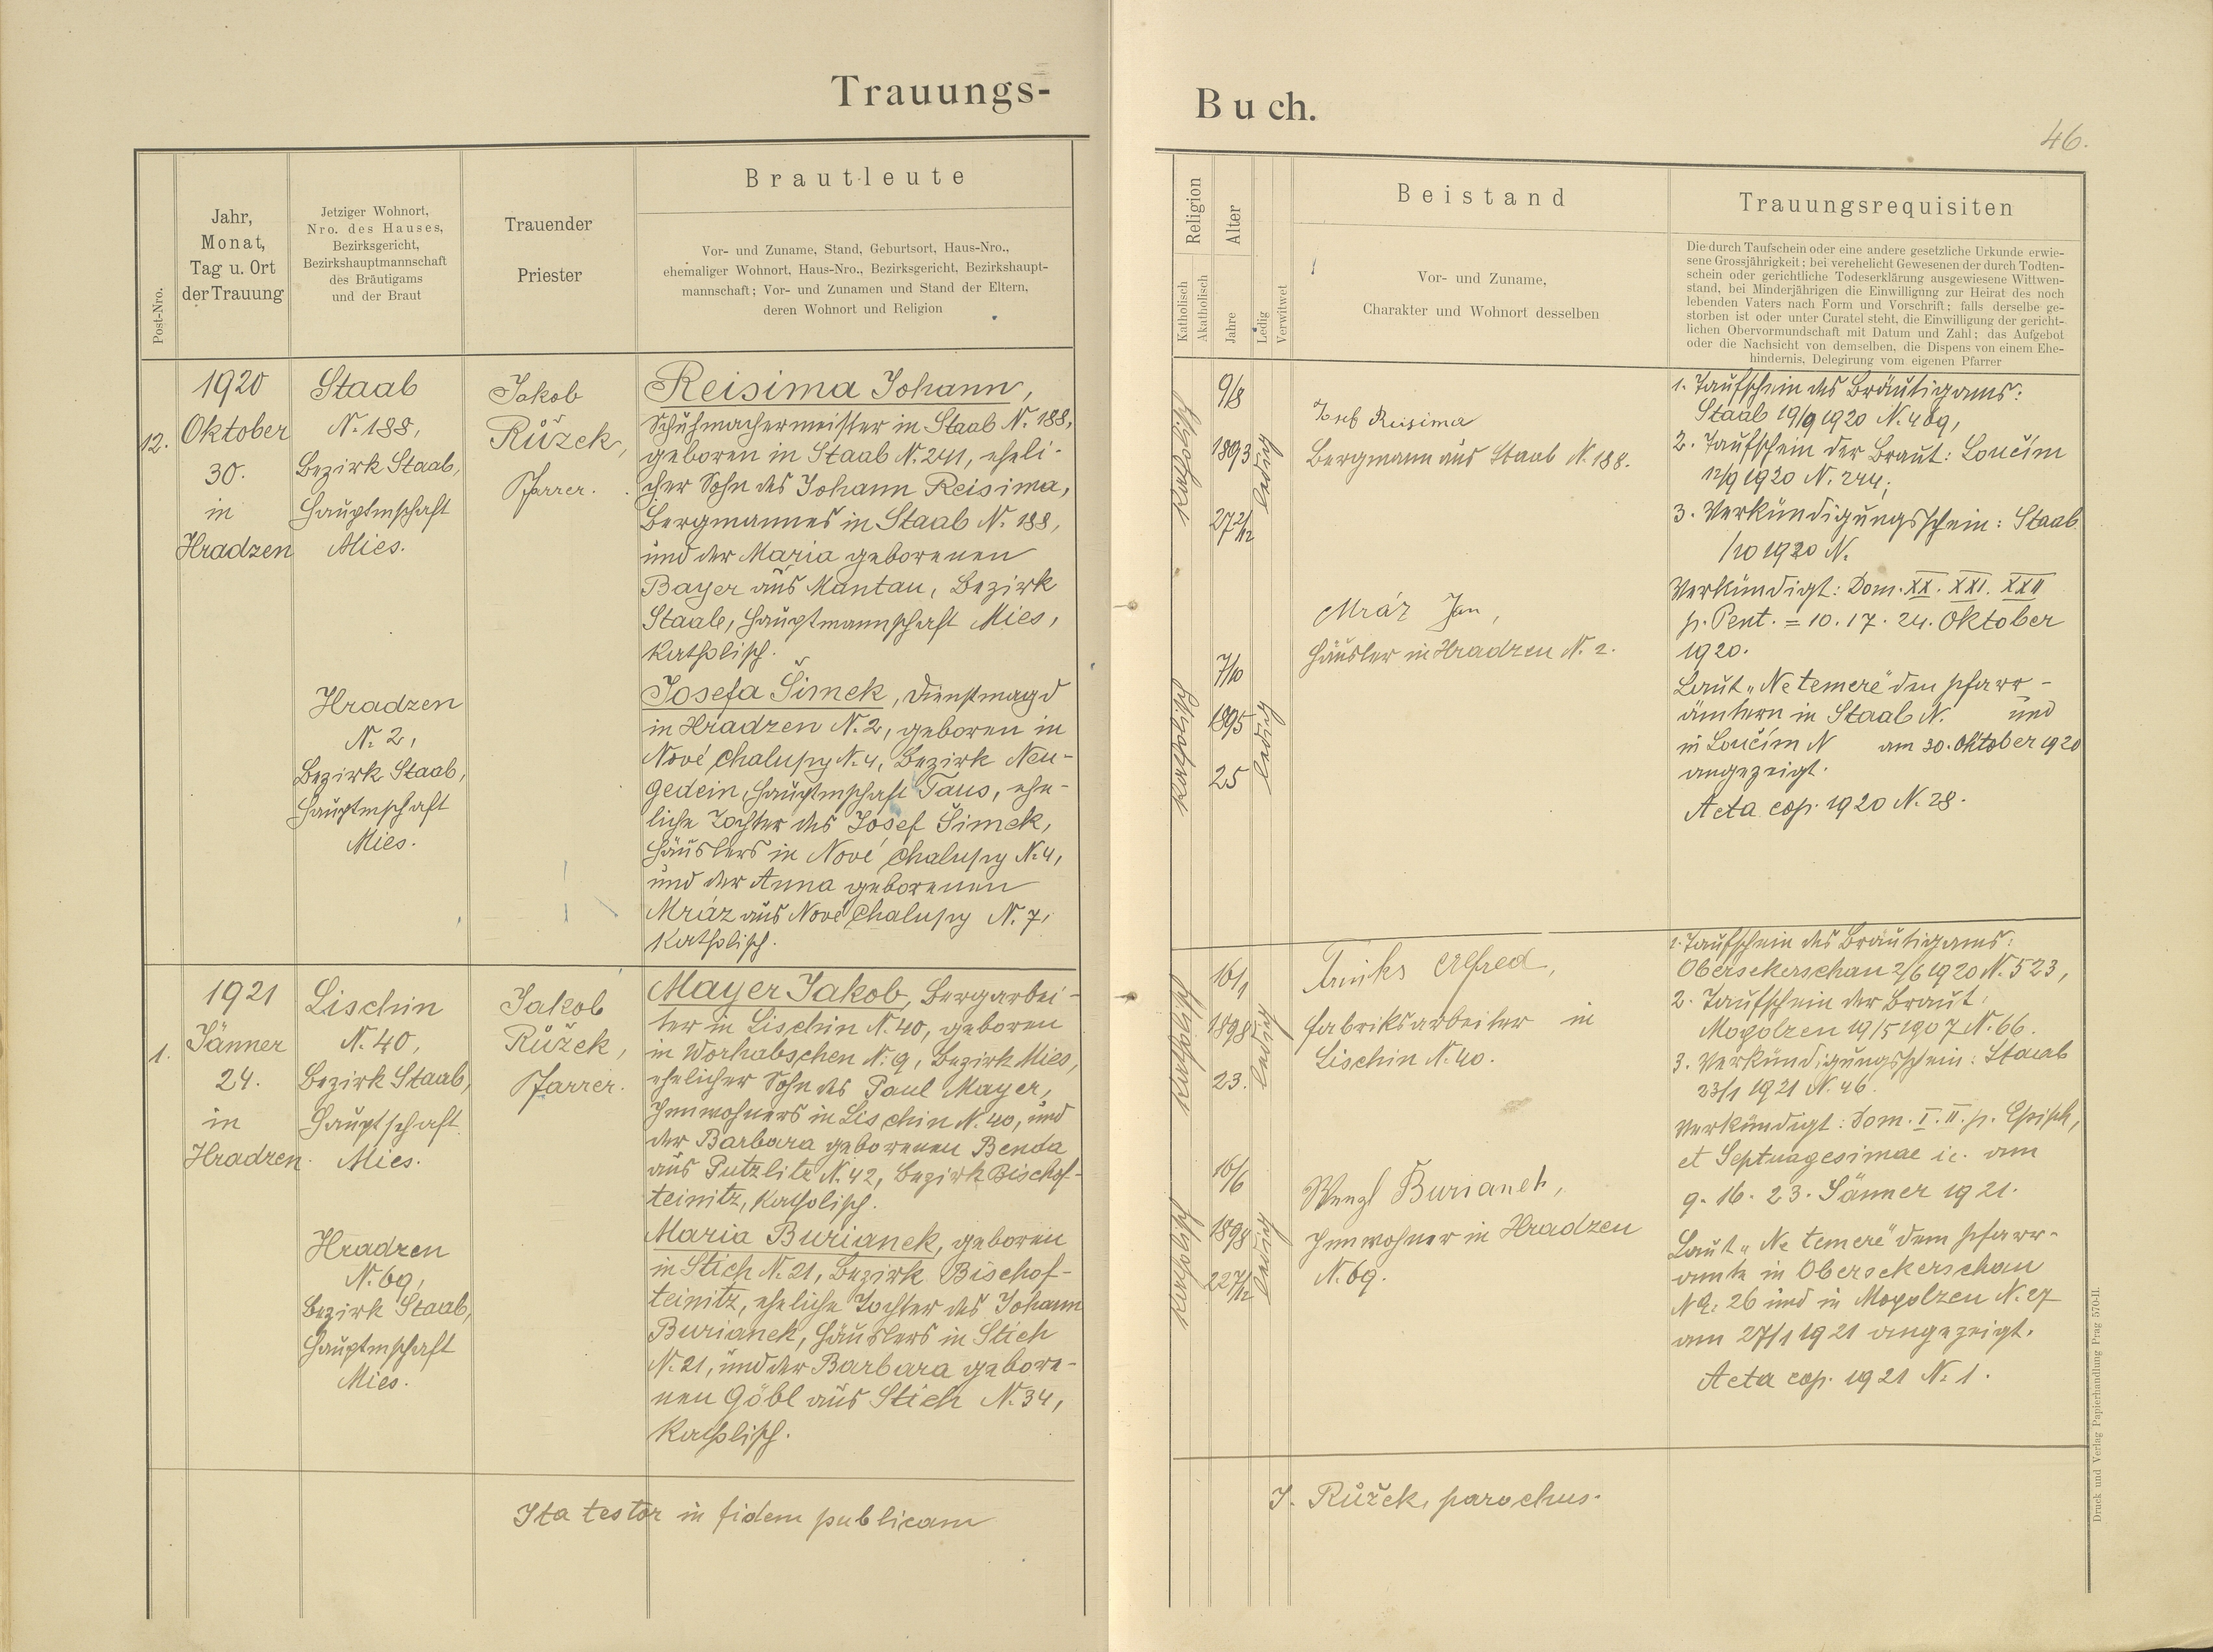 Trauungs-
Post-Nro.
Jahr,
Monat,
Tag u. Ort
der Trauung
Jetziger Wohnort,
Nro. des Hauses,
Bezirksgericht,
Bezirkshauptmannschaft
des Bräutigams
und der Braut
Trauender
Priester
Brautleute
Vor- und Zuname, Stand, Geburtsort, Haus-Nro.,
ehemaliger Wohnort, Haus-Nro., Bezirksgericht, Bezirkshaupt-
mannschaft; Vor- und Zunamen und Stand der Eltern,
deren Wohnort und Religion
12.
1920
Oktober
30.
in
Hradzen
Staab
N. 188,
Bezirk Staab,
Hauptmschaft
Mies.
Hradzen
N. 2,
Bezirk Staab,
Hauptmschaft
Mies.
Jakob
Růžek,
Pfarrer.
Reisima Johann,
Schuhmachermeister in Staab N. 188,
geboren in Staab N. 241, eheli-
cher Sohn des Johann Reisima,
Bergmannes in Staab N. 188,
und der Maria geborenen
Bayer aus Mantau, Bezirk
Staab, Hauptmannschaft Mies,
katholisch.
Josefa Šimek, Dienstmagd
in Hradzen N. 2, geboren in
Nové Chalupy N. 4, Bezirk Neu-
gedein, Hauptmschaft Taus, ehe-
liche Tochter des Josef Šimek,
Häuslers in Nové Chalupy N. 4,
und der Anna geborenen
Mráz aus Nové Chalupy N. 7,
katholisch.
1.
1921
Jänner
24.
in
Hradzen.
Lischin
N. 40,
Bezirk Staab,
Hauptschaft
Mies.
Hradzen
N. 69,
Bezirk Staab,
Hauptmschaft
Mies.
Jakob
Růžek,
Pfarrer.
Mayer Jakob, Bergarbei-
ter in Lischin N. 40, geboren
in Worhabschen N. 9, Bezirk Mies,
ehelicher Sohn des Paul Mayer,
Innwohners in Lischin N. 40, und
der Barbara geborenen Benda
aus Putzlitz N. 42, Bezirk Bischof-
teinitz, katholisch.
Maria Burianek, geboren
in Stich N. 21, Bezirk Bischof-
teinitz, eheliche Tochter des Johann
Burianek, Häuslers in Stich
N. 21, und der Barbara gebore-
nen Göbl aus Stich N. 34,
katholisch.
Ita testor in fidem publicam
Buch.
46.
Religion
Katholisch
Akatholisch
Alter
Jahre
Ledig
Verwitwet
Beistand
Vor- und Zuname,
Charakter und Wohnort desselben
Trauungsrequisiten
Die durch Taufschein oder eine andere gesetzliche Urkunde erwie-
sene Grossjährigkeit; bei verehelicht Gewesenen der durch Todten-
schein oder gerichtliche Todeserklärung ausgewiesene Wittwen-
stand, bei Minderjährigen die Einwilligung zur Heirat des noch
lebenden Vaters nach Form und Vorschrift; falls derselbe ge-
storben ist oder unter Curatel steht, die Einwilligung der gericht-
lichen Obervormundschaft mit Datum und Zahl; das Aufgebot
oder die Nachsicht von demselben, die Dispens von einem Ehe-
hindernis, Delegirung vom eigenen Pfarrer
katholisch
9/8
1893
27 2/12
ledig
Josef Reisima
Bergmann aus Staab N. 188.
katholisch
7/10
1895
25
ledig
Mráz Jan,
Häusler in Hradzen N. 2.
1. Taufschein des Bräutigams:
Staab 19/9 1920 N. 469,
2. Taufschein der Braut: Loučím
12/9 1920 N. 244;
3. Verkündigungsschein: Staab
/10 1920 N.
Verkündigt: Dom. XX. XXI. XXII
p. Pent. = 10. 17. 24. Oktober
1920.
Laut "Ne temere" den Pfarr-
ämtern in Staab N. und
in Loučím N am 30. Oktober 1920
angezeigt.
Acta cop. 1920 N. 28.
katholisch
16/1
1898
23.
ledig
Alfred,
Fabriksarbeiter in
Lischin N. 40.
katholisch
16/6
1898
22 7/12
ledig
Wenzl Burianek,
Innwohner in Hradzen
N. 69.
1. Taufschein des Bräutigams:
Obersekerschan 2/6 1920 N. 523,
2. Taufschein der Braut:
Mogolzen 19/5 1907 N. 66.
3. Verkündigungsschein: Staab
23/1 1921 N. 46.
Verkündigt: Dom. I. II. p. Epiph,
et Septuagesimae i. e. am
9. 16. 23. Jänner 1921.
Laut "Ne temere" dem Pfarr-
amte in Obersekerschan
N. 26 und in Mogolzen N. 27
am 27/1 1921 angezeigt.
Acta cop. 1921 N. 1.
J. Růžek, parochus.
Druck und Verlag Papierhandlung Prag 570-II.